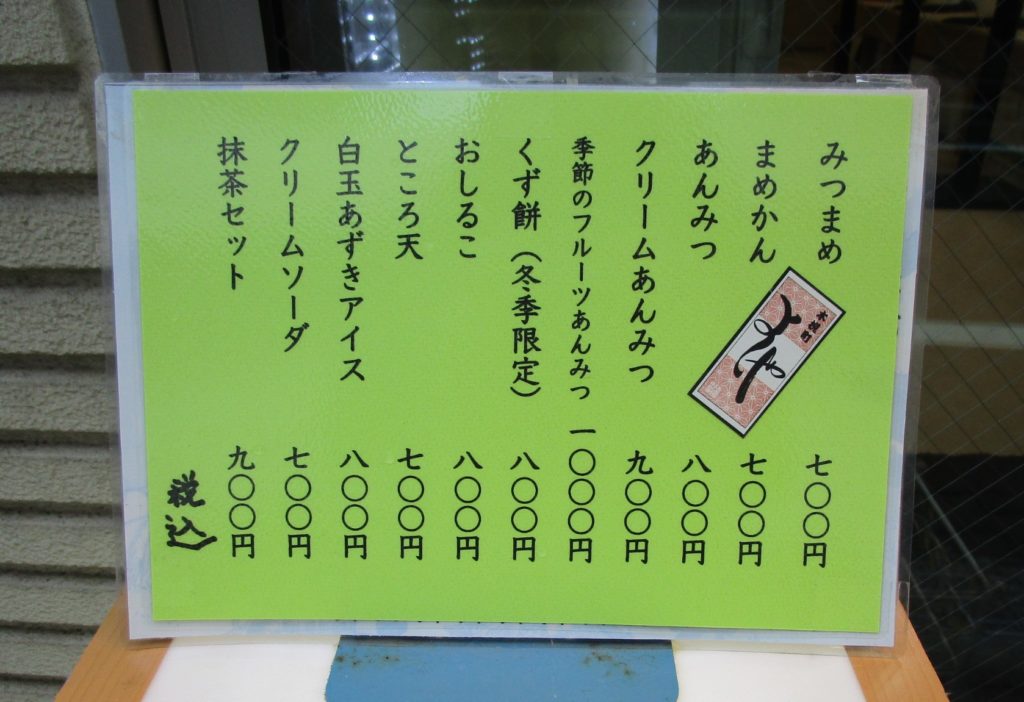 みつまめ 七〇〇円
まめかん 七〇〇円
あんみつ 八〇〇円
クリームあんみつ 九〇〇円
季節のフルーツあんみつ 一〇〇〇円
くず餅（冬季限定） 八〇〇円
おしるこ 八〇〇円
ところ天 七〇〇円
白玉あずきアイス 八〇〇円
クリームソーダ 七〇〇円
抹茶セット 九〇〇円
税込